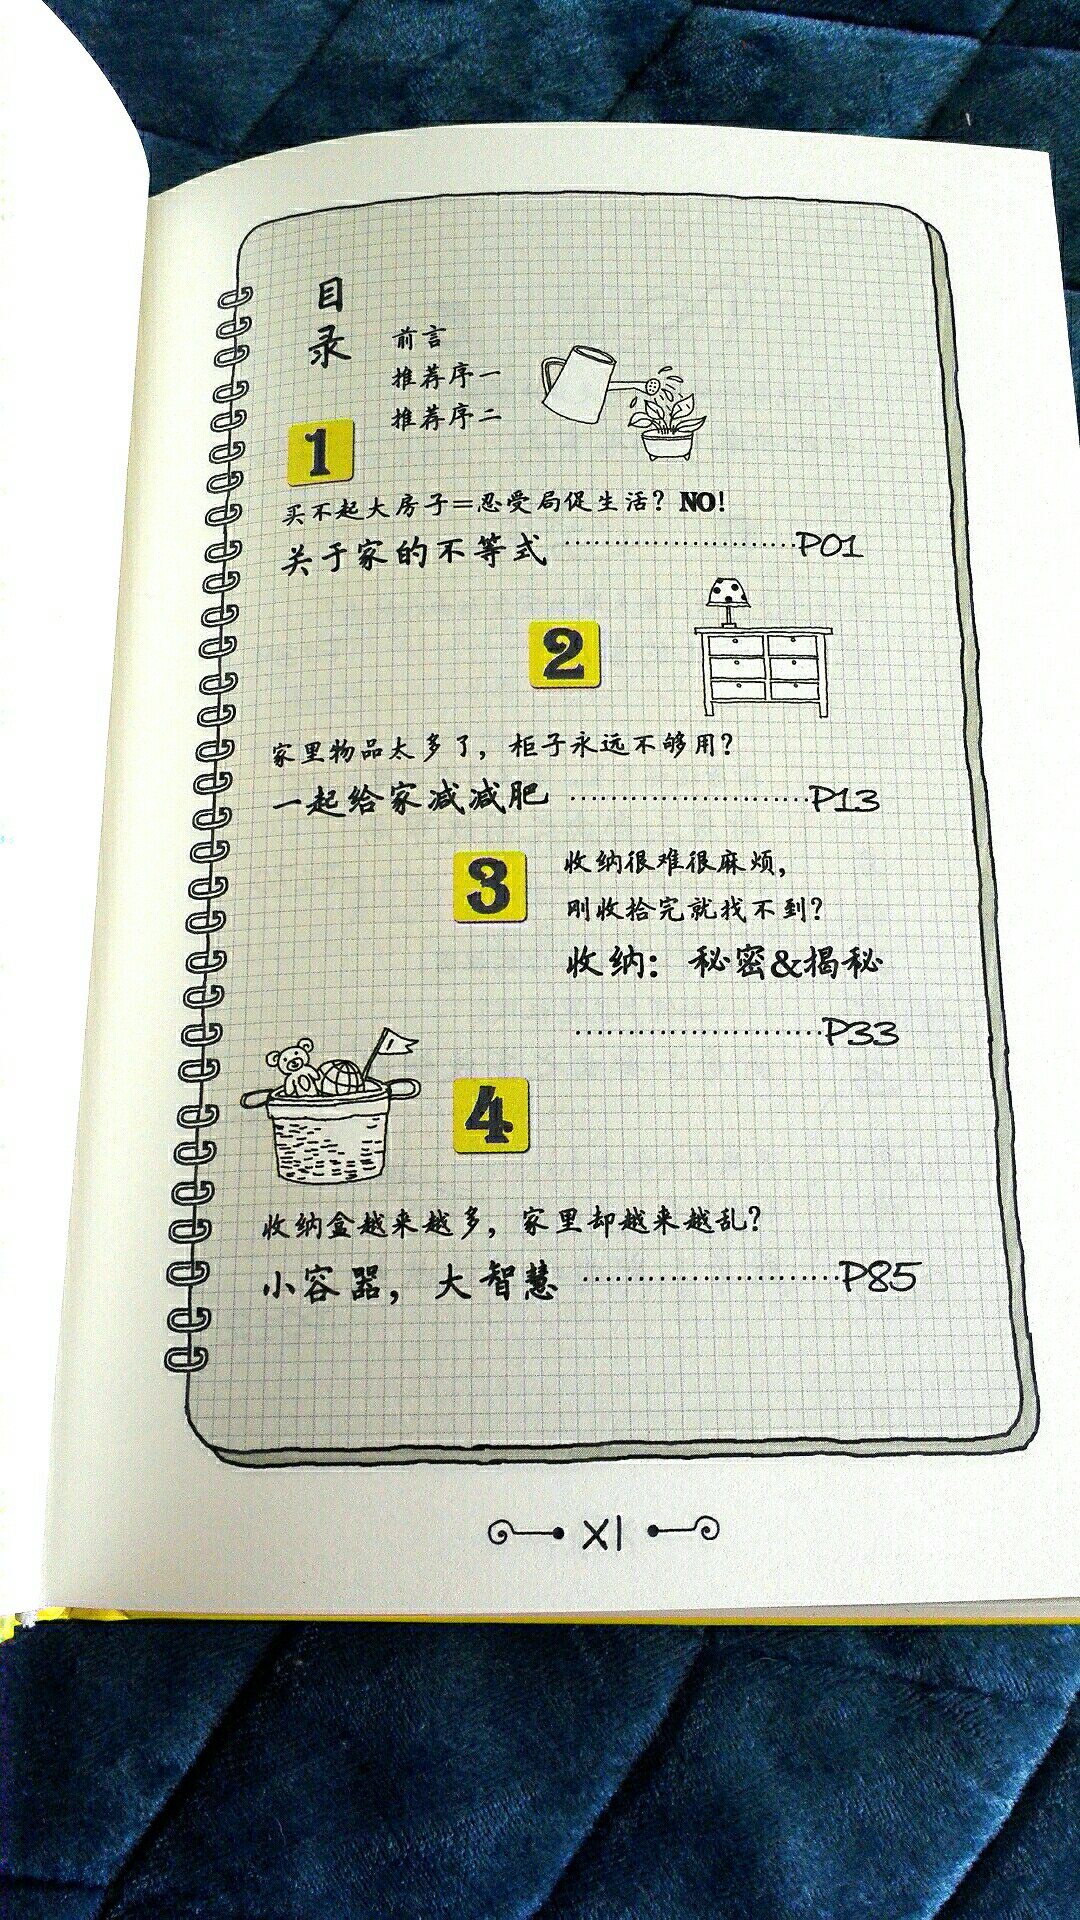 目录
前言
推荐序一
推荐序二
1
买不起大房子=忍受局促生活？NO！
关于家的不等式······················P01
2
家里物品太多了，柜子永远不够用？
一起给家减减肥······················P13
3
收纳很难很麻烦，
刚收拾完就找不到？
收纳：秘密&揭秘
······················P33
4
收纳盒越来越多，家里却越来越乱？
小容器，大智慧······················P85
XI